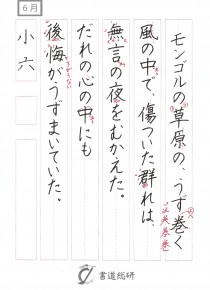 6月
モンゴルの草原の、うず巻く
風の中で、傷ついた群れは、
無言の夜をむかえた。
だれの心の中にも
後悔が、うずまいていた。
小六
書道総研